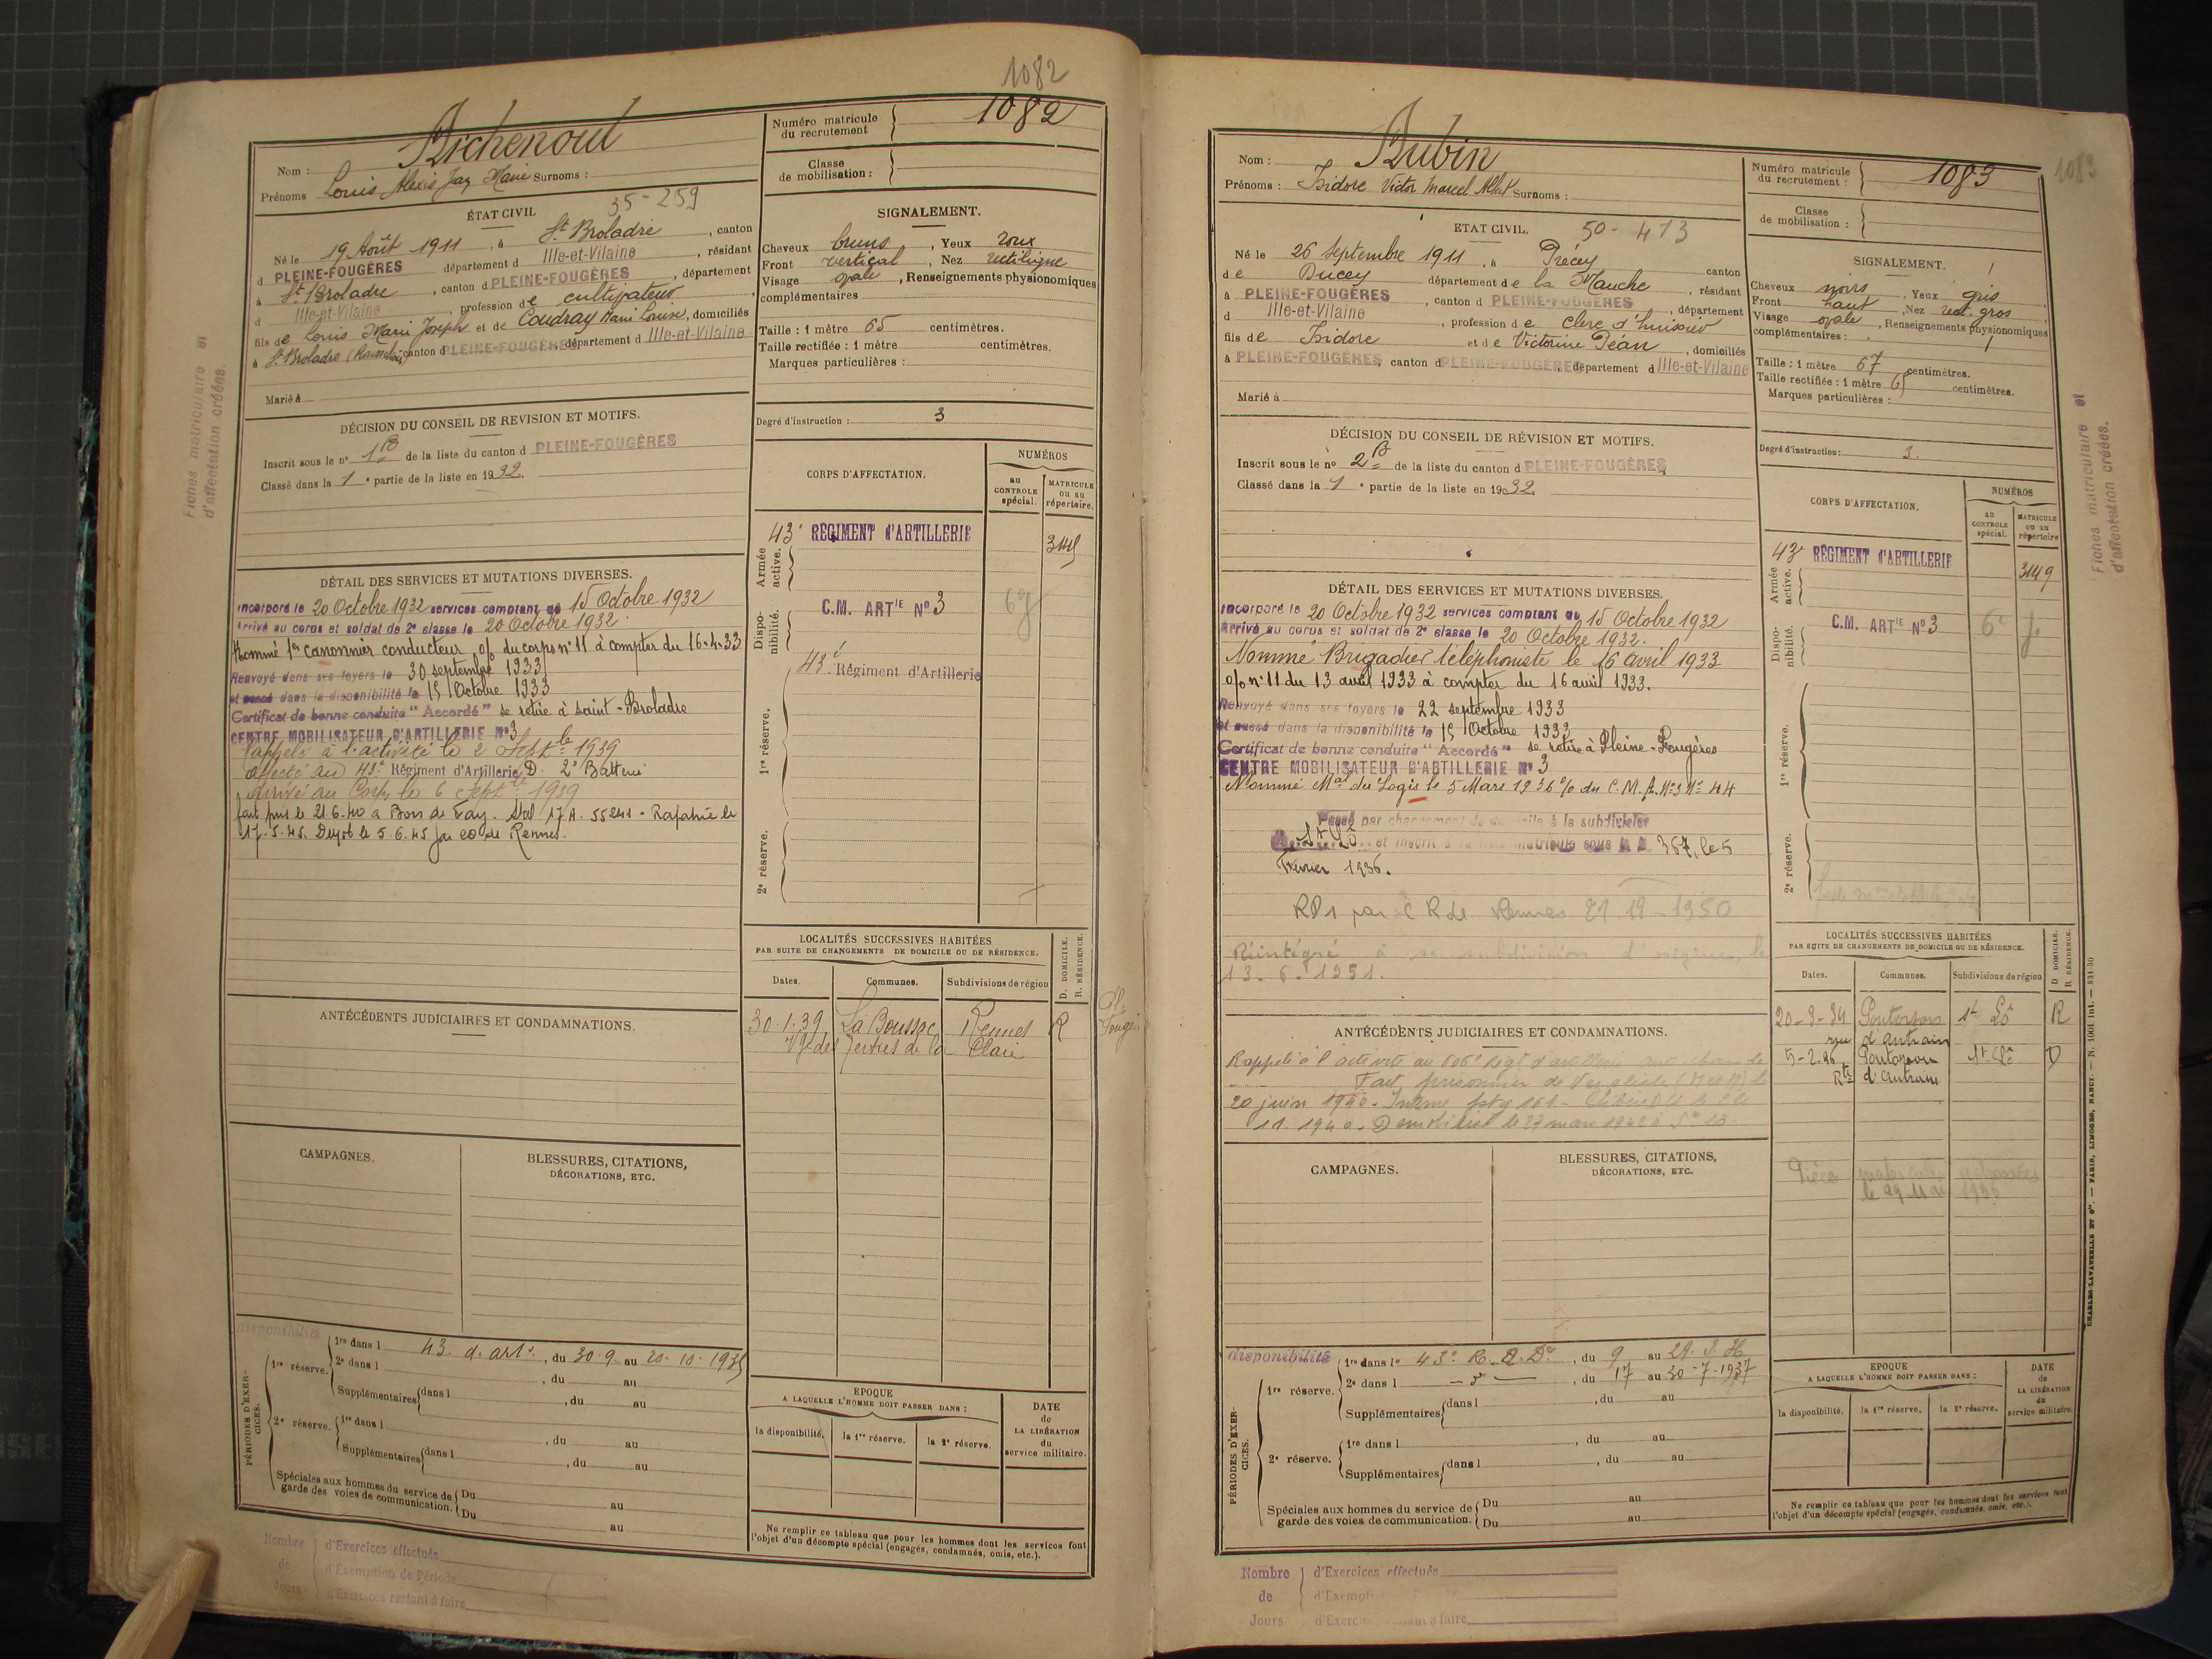 1082
Nom : Richenoul
Prénoms Louis Alexis Jay Marie Surnoms :
Numéro matricule du recrutement 1082
Classe de mobilisation :
35-259
ÉTAT CIVIL
Né le 19 Août 1911, à St Broladre, canton
d PLEINE-FOUGÈRES département d Ille-et-Vilaine, résidant
à St Broladre, canton d PLEINE-FOUGÈRES, département
d Ille-et-Vilaine, profession de cultivateur
fils de Louis Marie Joseph et de Coudray Marie Louise, domiciliés
à St Broladre canton d PLEINE-FOUGÈRES, département d Ille-et-Vilaine
Marié à
SIGNALEMENT.
Cheveux bruns, Yeux roux
Front vertical, Nez rectiligne
Visage ovale, Renseignements physionomiques
complémentaires
Taille : 1 mètre 65 centimètres.
Taille rectifiée : 1 mètre centimètres.
Marques particulières :
Degré d'instruction : 3
DÉCISION DU CONSEIL DE REVISION ET MOTIFS.
Inscrit sous le n° 1 B de la liste du canton d PLEINE-FOUGÈRES
Classé dans la 1e partie de la liste en 1932.
CORPS D'AFFECTATION.
NUMÉROS
au CONTROLE spécial.
MATRICULE ou au répertoire.
Armée active.
43e RÉGIMENT d'ARTILLERIE
Disponibilité.
C.M. ARTIE N° 3
43e Régiment d'Artillerie
1re réserve.
2e réserve.
DÉTAIL DES SERVICES ET MUTATIONS DIVERSES.
Incorporé le 20 Octobre 1932 services comptant du 15 Octobre 1932
Arrivé au corps et soldat de 2e classe le 20 Octobre 1932.
Nommé 1er canonnier conducteur o/o du corps n° 11 à compter du 16-4-33
Renvoyé dans ses foyers le 30 septembre 1933
et passé dans la disponibilité le 15 Octobre 1933
Certificat de bonne conduite "Accordé" se retire à saint-Broladre
CENTRE MOBILISATEUR D'ARTILLERIE N° 3
Rappelé à l'activité le 2 Septbre 1939
affecté au 43e Régiment d'Artillerie D. 2e Batterie
Arrivé au Corps le 6 Septbre 1939
fait pris le 21.6.40 à Bois de Fay. Stal 17A. 55241 - Rapatrié le
17.5.45.
LOCALITÉS SUCCESSIVES HABITÉES
PAR SUITE DE CHANGEMENTS DE DOMICILE OU DE RÉSIDENCE.
Dates. Communes. Subdivisions de région
D. DOMICILE. R. RÉSIDENCE.
30.1.39 La Boussac Rennes R
ANTÉCÉDENTS JUDICIAIRES ET CONDAMNATIONS.
CAMPAGNES.
BLESSURES, CITATIONS, DÉCORATIONS, ETC.
disponibilité
PÉRIODES D'EXERCICES.
1re réserve. 1re dans l 43e d'art., du 30.9. au 20.10.1935
2e dans l , du au
Supplémentaires dans l , du au
2e réserve. 1re dans l , du au
Supplémentaires dans l , du au
Spéciales aux hommes du service de garde des voies de communication. Du au
Du au
EPOQUE
A LAQUELLE L'HOMME DOIT PASSER DANS :
la disponibilité. la 1re réserve. la 2e réserve.
DATE de LA LIBÉRATION du service militaire.
Ne remplir ce tableau que pour les hommes dont les services font
l'objet d'un décompte spécial (engagés, condamnés, omis, etc.).
Nombre de Jours
d'Exercices effectués
d'Exemption de Période
d'Exercices restant à faire
Fiches matriculaire et
d'affectation créées.
1083
Nom : Bubin
Prénoms : Isidore Victor Marcel Albert Surnoms :
Numéro matricule du recrutement : 1083
Classe de mobilisation :
50-413
ETAT CIVIL.
Né le 26 Septembre 1911, à Précey canton
de Ducey département de la Manche, résidant
à PLEINE-FOUGÈRES, canton d PLEINE-FOUGÈRES, département
d Ille-et-Vilaine, profession de clerc d'huissier
fils de Isidore et de Victorine Péan, domiciliés
à PLEINE-FOUGÈRES, canton d PLEINE-FOUGÈRES, département d Ille-et-Vilaine
Marié à
SIGNALEMENT.
Cheveux noirs, Yeux gris
Front haut, Nez rect. gros
Visage ovale, Renseignements physionomiques
complémentaires :
Taille : 1 mètre 67 centimètres.
Taille rectifiée : 1 mètre centimètres.
Marques particulières :
Degré d'instruction : 3.
DÉCISION DU CONSEIL DE RÉVISION ET MOTIFS.
Inscrit sous le n° 2 B de la liste du canton d PLEINE-FOUGÈRES
Classé dans la 1e partie de la liste en 1932.
CORPS D'AFFECTATION.
NUMÉROS
au CONTROLE spécial.
MATRICULE ou au répertoire
Armée active.
43e RÉGIMENT d'ARTILLERIE 3149
Disponibilité.
C.M. ARTIE N° 3
1re réserve.
2e réserve.
DÉTAIL DES SERVICES ET MUTATIONS DIVERSES.
Incorporé le 20 Octobre 1932 services comptant du 15 Octobre 1932
Arrivé au corps et soldat de 2e classe le 20 Octobre 1932.
Nommé Brigadier téléphoniste le 16 avril 1933
o/o n° 11 du 13 avril 1933 à compter du 16 avril 1933.
Renvoyé dans ses foyers le 22 septembre 1933
et passé dans la disponibilité le 15 Octobre 1933
Certificat de bonne conduite "Accordé" se retire à Pleine-Fougères
CENTRE MOBILISATEUR D'ARTILLERIE N° 3
Nommé Mal des Logis le 5 Mars 1936 o/o du C.M.A. N° 3 N° 44
Passé par changement de domicile à la subdivision
de St Lô et inscrit à la liste matricule sous le n° 367, le 5
Février 1936.
Réintégré à sa subdivision d'origine le
13.6.1951.
LOCALITÉS SUCCESSIVES HABITÉES
PAR SUITE DE CHANGEMENTS DE DOMICILE OU DE RÉSIDENCE.
Dates. Communes. Subdivisions de région
D. DOMICILE R. RÉSIDENCE.
Pontorson St Lô R
rue d'Antrain
5-2-36 Pontorson St Lô D
Rte d'Antrain
ANTÉCÉDENTS JUDICIAIRES ET CONDAMNATIONS.
20 juin 1940
CAMPAGNES.
BLESSURES, CITATIONS, DÉCORATIONS, ETC.
disponibilité
PÉRIODES D'EXERCICES.
1re réserve. 1re dans le 43e R.A.D., du 9 au
2e dans l , du 17 au 30-7-1937
Supplémentaires dans l , du au
2e réserve. 1re dans l , du au
Supplémentaires dans l , du au
Spéciales aux hommes du service de garde des voies de communication. Du au
Du au
EPOQUE
A LAQUELLE L'HOMME DOIT PASSER DANS :
la disponibilité. la 1re réserve. la 2e réserve.
DATE de LA LIBÉRATION du service militaire.
Ne remplir ce tableau que pour les hommes dont les services font
l'objet d'un décompte spécial (engagés, condamnés, omis, etc.).
Nombre de Jours
d'Exercices effectués
Fiches matriculaire et
d'affectation créées.